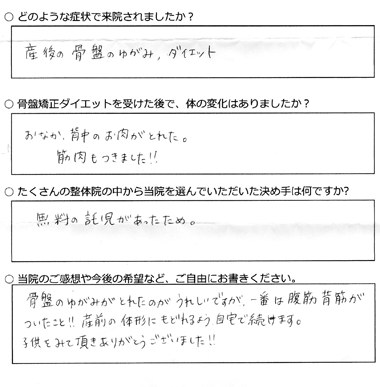 ○ どのような症状で来院されましたか？
産後の骨盤のゆがみ，ダイエット
○ 骨盤矯正ダイエットを受けた後で、体の変化はありましたか？
おなか、背中のお肉がとれた。
筋肉もつきました!!
○ たくさんの整体院の中から当院を選んでいただいた決め手は何ですか？
無料の託児があったため。
○ 当院のご感想や今後の希望など、ご自由にお書きください。
骨盤のゆがみがとれたのがうれしいですが、一番は腹筋背筋が
ついたこと!! 産前の体形にもどれるよう自宅で続けます。
子供をみて頂きありがとうございました!!